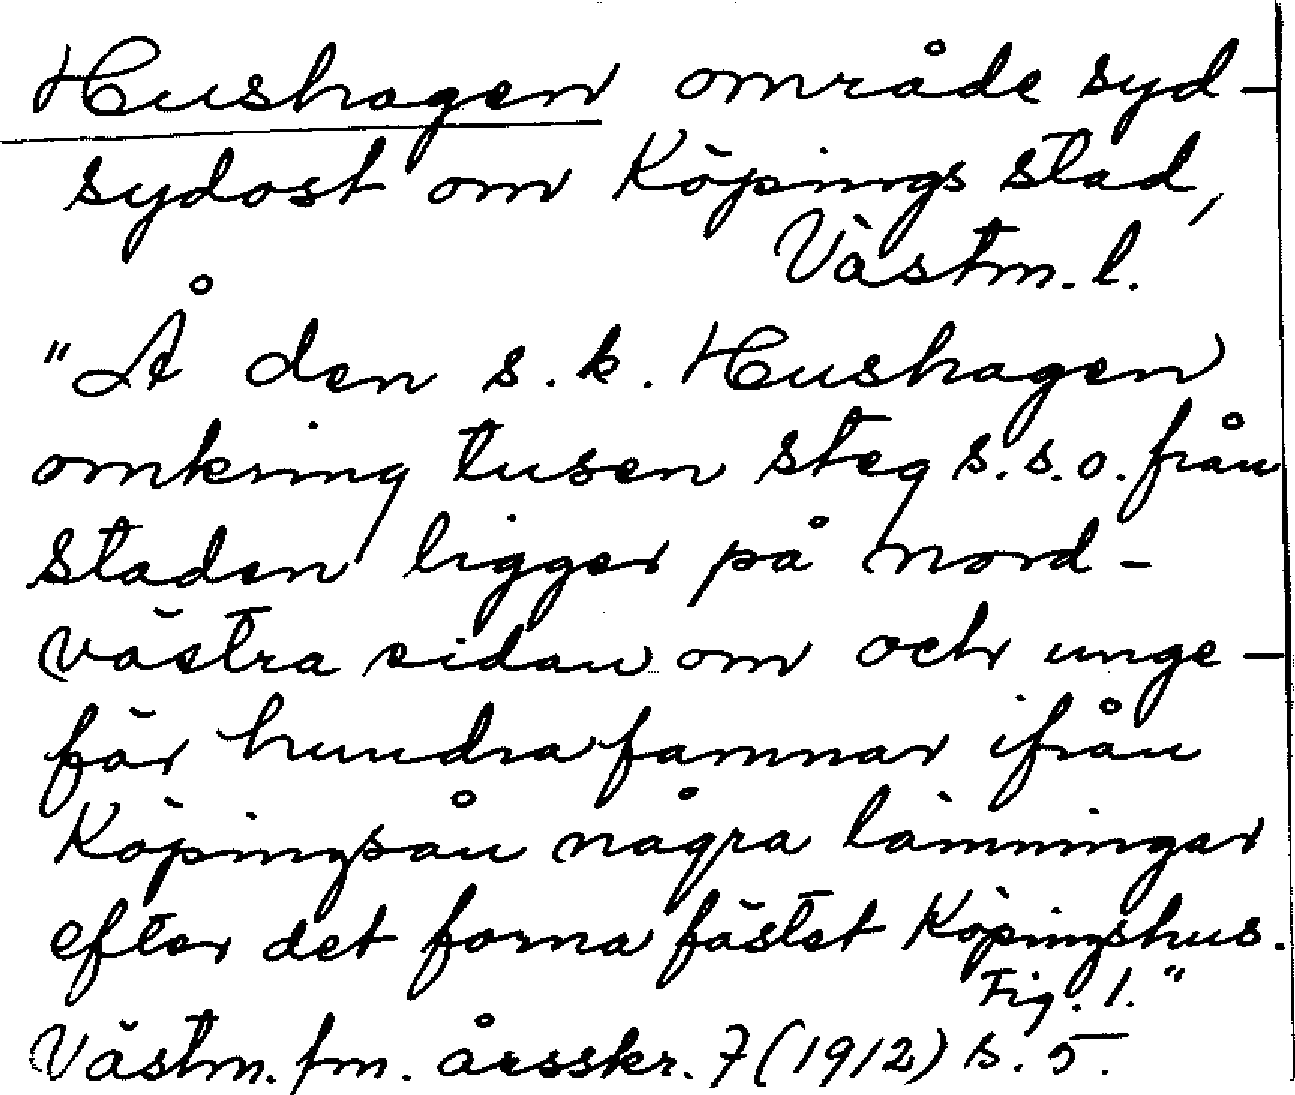 Hushagen område syd-
sydost om Köpings stad,
Västm. l.
"Å den s.k. Hushagen
omkring tusen steg s.s.o. från
staden ligger på nord-
västra sidan om och unge-
fär hundra famnar ifrån
Köpingsån några lämningar
efter det forna fästet Köpingshus.
Fig. 1."
Västm. fm. årsskr. 7 (1912) s. 5.